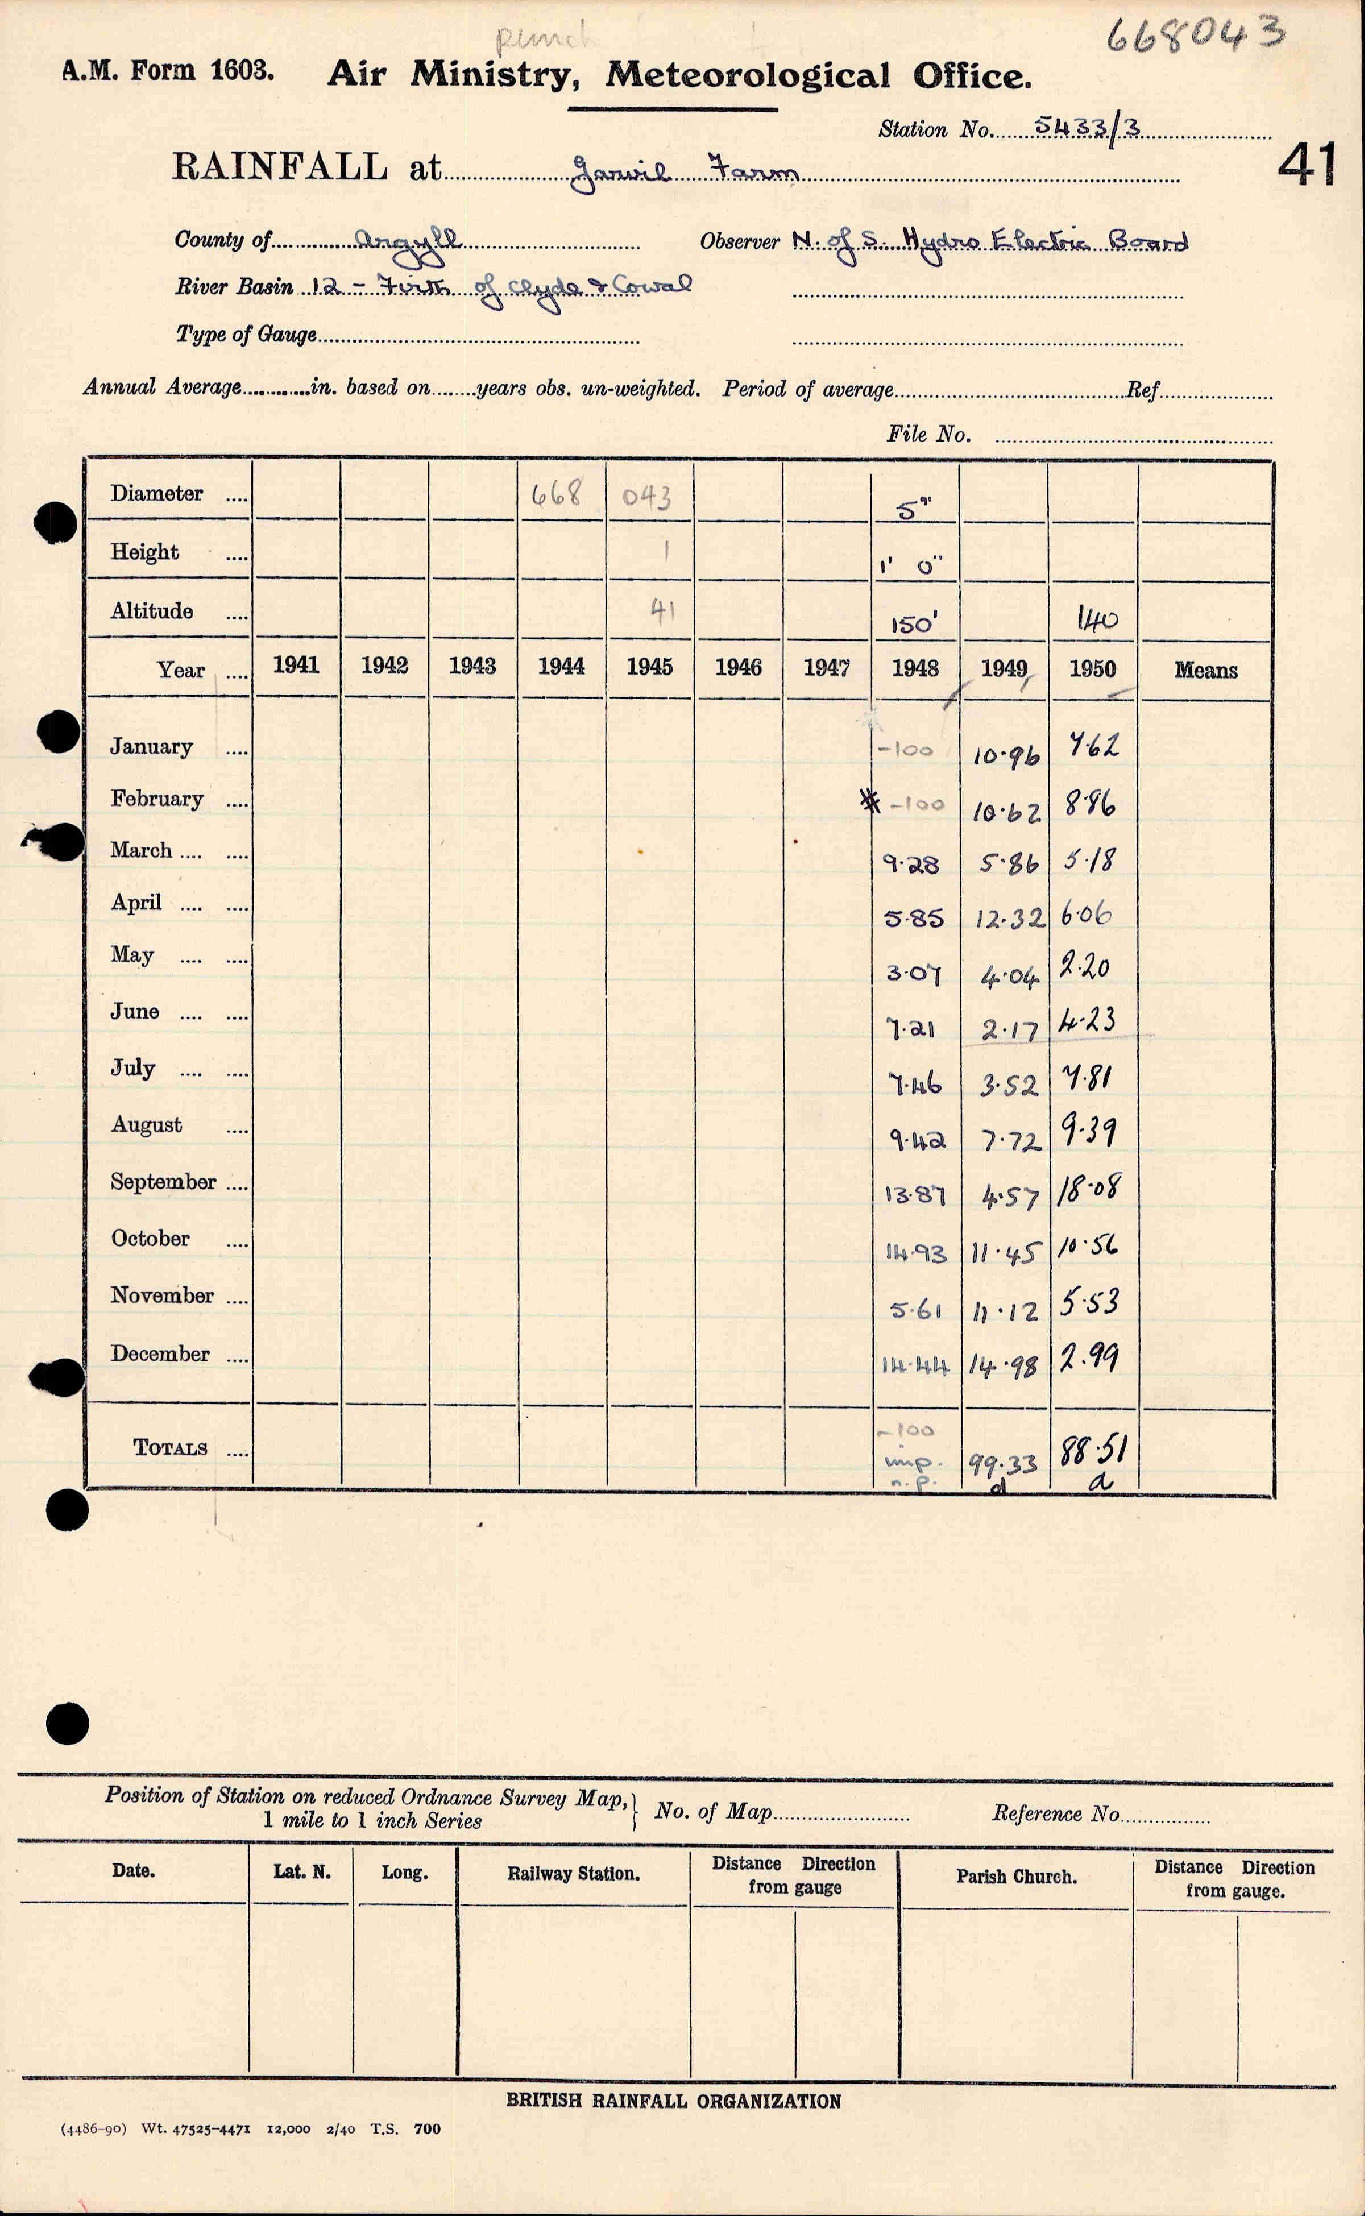 punch
668043
A.M. Form 1603. Air Ministry, Meteorological Office.
Station No. 5433/3
41
RAINFALL at Garvil Farm
County of Argyll Observer N. of S. Hydro Electric Board
River Basin 12 - Firth of Clyde & Cowal
Type of Gauge
Annual Average in. based on years obs. un-weighted. Period of average Ref.
File No.
Diameter .... 668 043 5"
Height .... 1 1' 0"
Altitude .... 41 150' 140
Year .... 1941 1942 1943 1944 1945 1946 1947 1948 1949 1950 Means
January .... -100 10.96 7.62
February .... * -100 10.62 8.86
March .... .... 9.28 5.86 5.18
April .... .... 5.85 12.32 6.06
May .... .... 3.07 4.04 2.20
June .... .... 7.21 2.17 4.23
July .... .... 7.46 3.52 7.81
August .... 9.42 7.72 9.39
September .... 13.87 4.57 18.08
October .... 14.93 11.45 10.56
November .... 5.61 11.12 5.53
December .... 14.44 14.98 2.99
-100
TOTALS .... imp. 99.33 88.51
n.p. d d
Position of Station on reduced Ordnance Survey Map,} No. of Map Reference No.
1 mile to 1 inch Series
Date. Lat. N. Long. Railway Station. Distance Direction Parish Church. Distance Direction
from gauge from gauge.
BRITISH RAINFALL ORGANIZATION
(4486-90) Wt. 47525-4471 12,000 2/40 T.S. 700